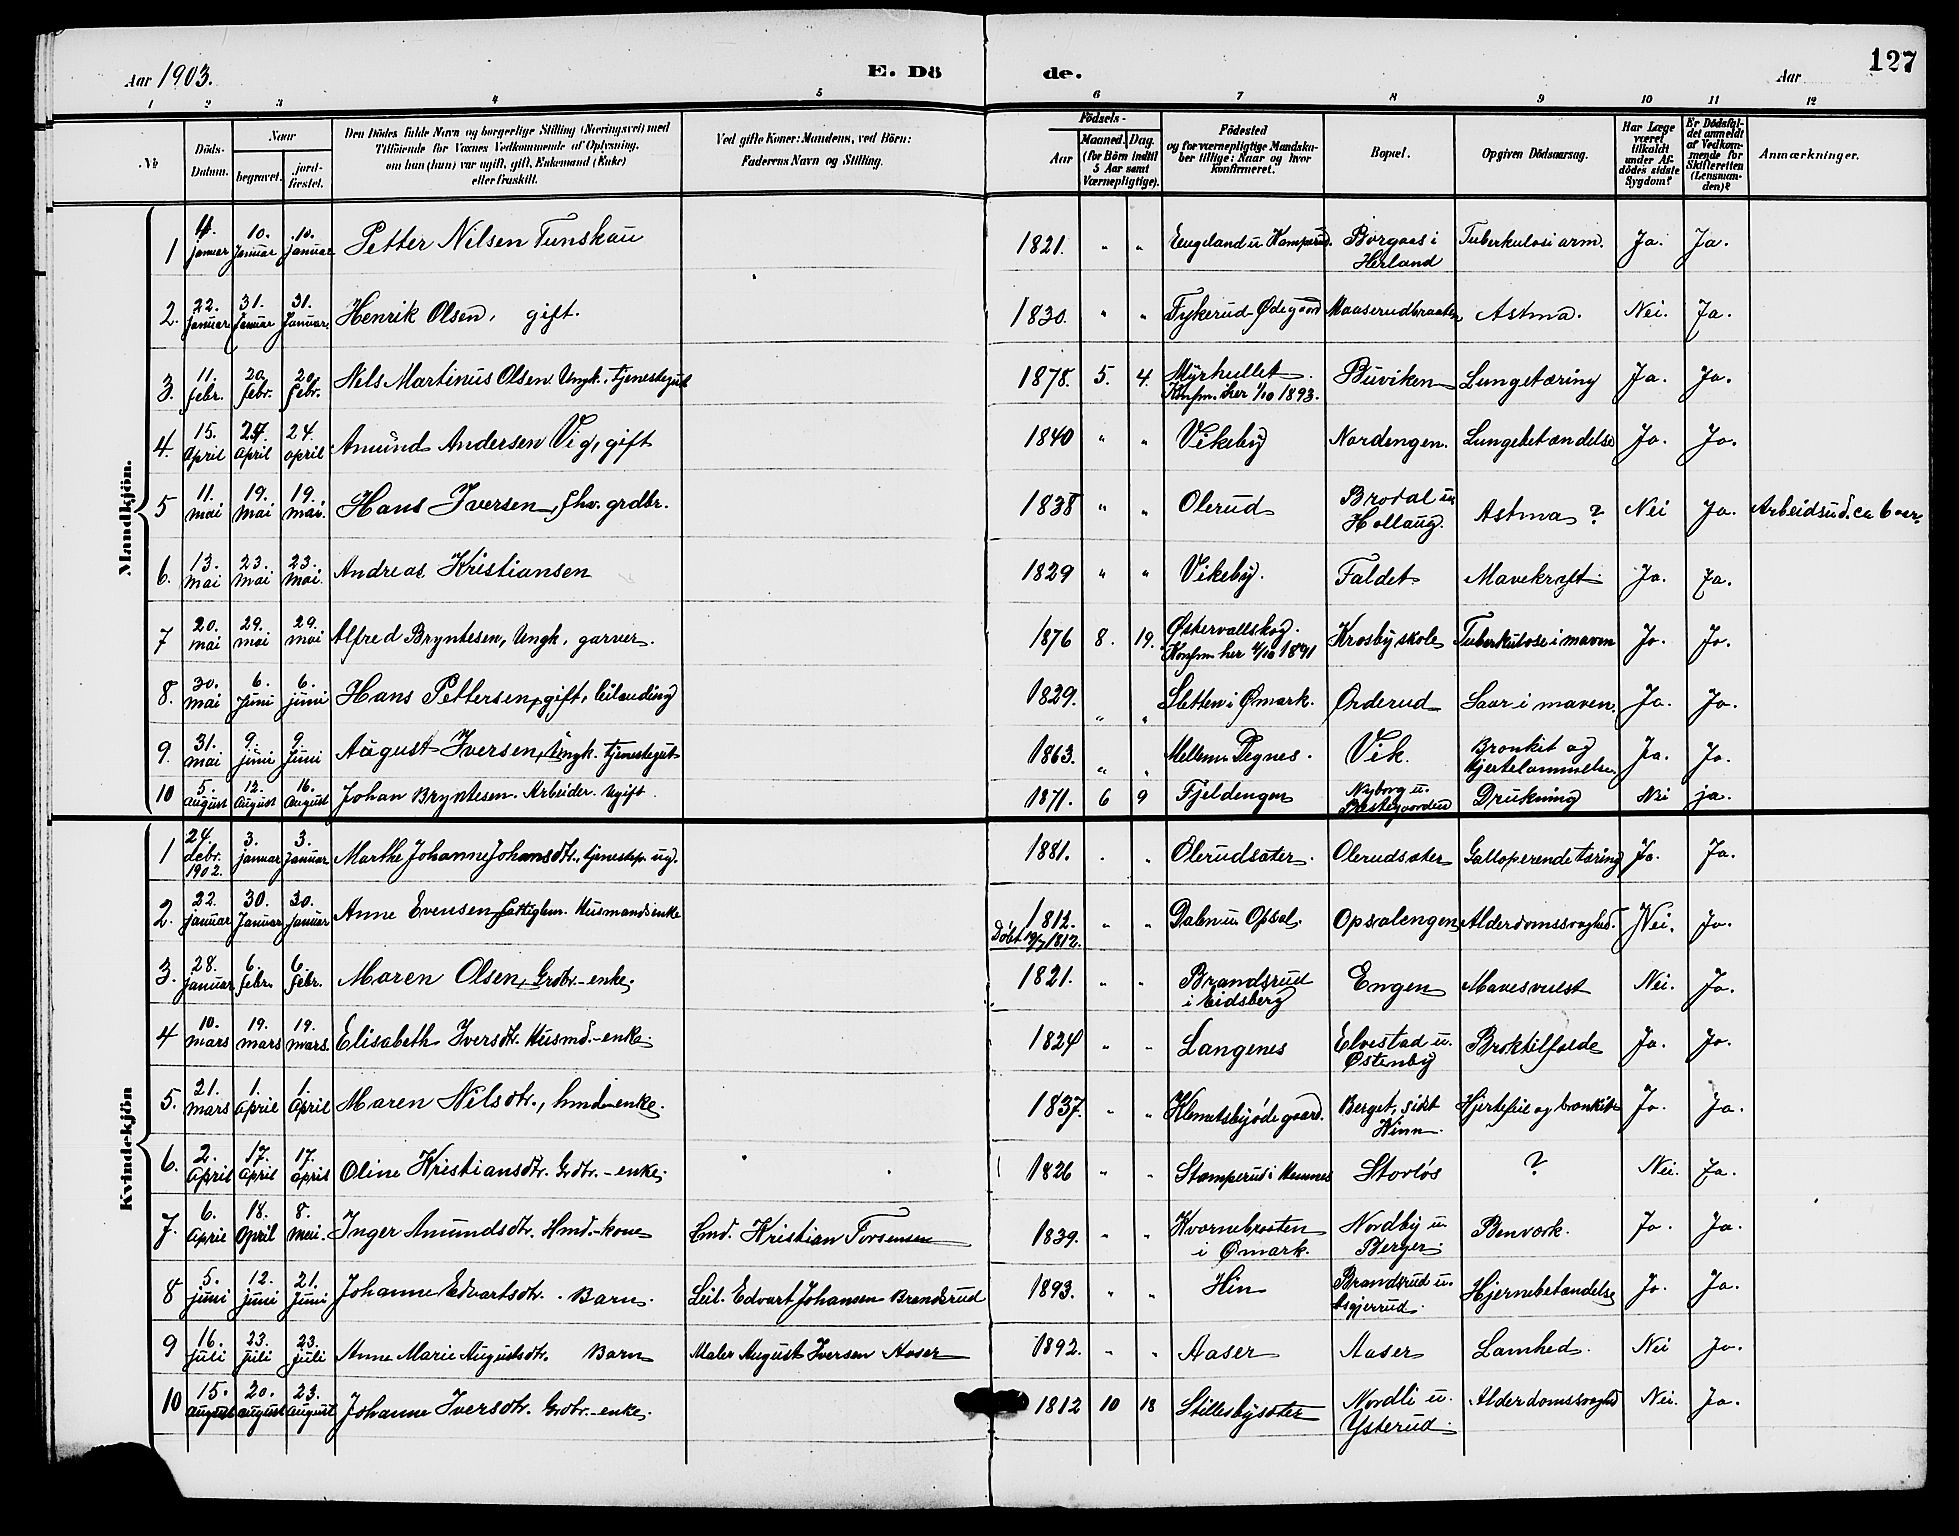 Aar 1903. E. Dö de. Aar 127
1 2 3 4 5 6 7 8 9 10 11 12
No Döds-Datum. Naar begravet. jord-fæstet. Den Dödes fulde Navn og borgerlige Stilling (Næringsvei) med Tilföiende for Voxnes Vedkommende af Oplysning, om han (hun) var ugift, gift, Enkemand (Enke) eller fraskilt. Ved gifte Koner: Mandens, ved Börn: Faderens Navn og Stilling. Födsels- Aar Maaned. Dag. (for Börn indtil 5 Aar samt Værnepligtige). Födested og for værnepligtige Mandskaber tillige: Naar og hvor konfirmeret. Bopæl. Opgiven Dödsaarsag. Har Læge været tilkaldt under Afdödes sidste Sygdom? Er Dödsfaldet anmeldt af Vedkommende for Skifteretten (Lensmanden)? Anmærkninger.
Mandkjön.
1 4. januar 10. Januar 10. januar Petter Nilsen Tunskau 1821. " " Eengeland u. Kamperud. Borgaas i Herland Tuberkulosi arm. Ja. Ja.
2. 22. januar 31. Januar 31. Januar. Henrik Olsen, gift. 1830. " " Fykerud-Ødegaard Maaserudbraaten Astma. Nei. Ja.
3. 11. febr. 20. febr. 20. febr. Nels Martinus Olsen. Ungk., tjenestegut 1878. 5. 4. Myrhullet. Konfm. her 1/10 1893. Buviken Lungetæring Ja. Ja.
4. 15. April 24. April 24. april Amund Andersen Vig, gift 1840 " " Vikeby Nordengen. Lungebetændelse Ja. Ja.
5 11. mai 19. Mai 19. mai. Hans Iversen, fhv. grdbr. 1838 " " Olerud Brodal u. Hollaug. Astma ? Nei Ja. Arbeidsud. ca 6 aar
6. 13. mai 23. Mai 23. Mai. Andreas Kristiansen 1829 " " Vikeby. Faldet Mavekræft. Ja. Ja.
7 20. mai 29. mai 29. mai Alfred Bryntesen, Ungk. garver. 1876 8. 19. Østervallskog. Konfm. her 4/10 1891 Krosby skole Tuberkulose i maven Ja. Ja.
8. 30. mai 6. Juni 6. juni Hans Pettersen, gift, leilænding 1829. " " Sletten i Ømark. Orderud Saar i maven. Ja. Ja.
9. 31. mai 9. juni 9. Juni August Iversen, Ungk. tjenestegut 1863. " " Mellem Degnes. Vik. Bronkit og Hjertelammelse. Ja. Ja.
10 5. august 12. August 16. August Johan Bryntesen. Arbeider. Ugift. 1871. 6 9 Fjeldengen Nyborg u. Drukning Nei ja.
Kvindekjön
1 24. debr. 1902. 3. januar 3. Januar Marthe Johanne Johansdtr., tjenestep. ug. 1881. " " Olerudsæter. Olerudsæter Galloperende tæring Ja. Ja.
2. 22. januar 30. Januar 30. januar Anne Evensen, Fattiglem. Husmandsenke 1812. Døbt 19/7 1812. " " Dalen u. Opsal. Opsalengen Alderdomssvaghed. Nei. Ja.
3. 28. januar 6. febr. 6. febr. Maren Olsen, Grdbr.-enke. 1821. " " Brandsrud i Eidsberg Engen Mavesvulst Nei. Ja.
4 10. mars 19. mars 19. mars. Elisabeth Iversdtr. Husmd.-enke. 1824 " " Langenes Elvestad u. Østenby Broktilfælde Ja. Ja.
5. 21. mars 1. April 1. April Maren Nilsdtr., hmd-enke. 1837. " " Klemetsbyødegaard. Berget, sidst Hinn. Hjertefeil og bronkite Ja. Ja.
6. 2. April 17. April 17. april Oline Kristiansdtr. Grdbr.-enke. 1826 " " Stomperud i Hemnes Storløs ? Nei. Ja.
7. 6. April 18. April 8. Mai. Inger Amundsdtr. Hmd.-kone Hmd. Kristian Torsensen 1839. " " Kvernebraaten i Ømark. Nordby u. Berger. Benværk. Ja. Ja.
8 5. juni 12. juni 21. Juni Johanne Edvartsdtr. Barn. Leil. Edvart Johansen Brandsrud 1893. " " Hin Brandsrud u. Asgjerrud. Hjernebetændelse Ja. Ja.
9 16. Juli 23. juli 23. Juli Anne Marie Augustsdtr. Barn Maler August Iversen Aaser 1892. " " Aaser Aaser Lamhed. Nei Ja.
10 15. august 20. august 23. august Johanne Iversdtr. Grdbr.-enke. 1812 10 18 Stillesbysæter Nordli u. Ysterud. Alderdomssvaghed Nei. Ja.